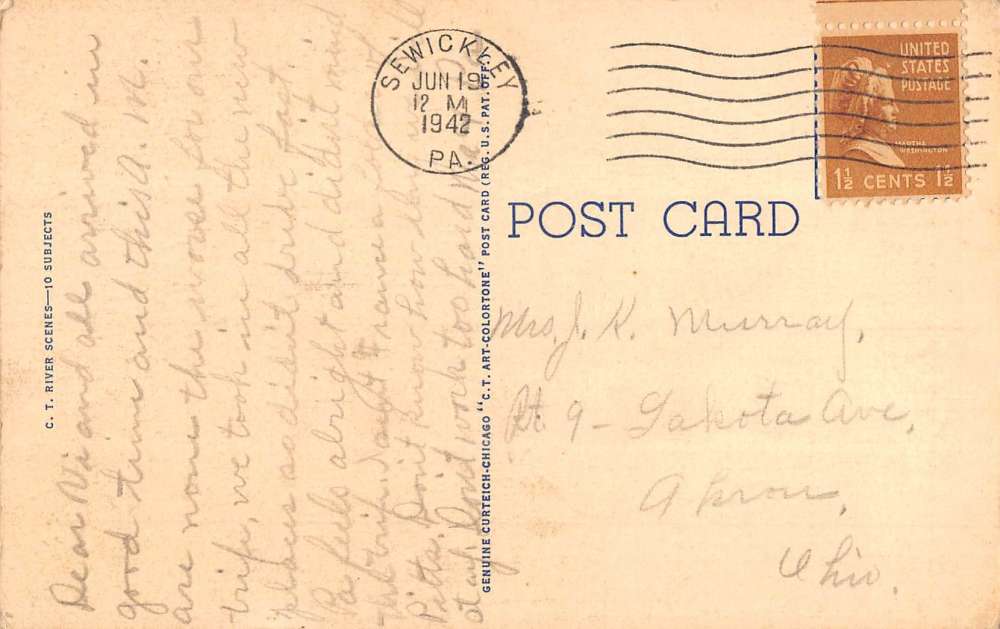 Dear Vi and all arrived in
good time and this A. M.
are none the worse for our
trip, we took in all the new
places so didn't drive fast.
Pa feels alright and didn't mind
the trip.
Pitts. Don't know how
stay. Don't work too hard
C. T. RIVER SCENES—10 SUBJECTS
GENUINE CURTEICH-CHICAGO "C.T. ART-COLORTONE" POST CARD (REG. U.S. PAT. OFF.)
SEWICKLEY
JUN 19
12 M
1942
PA.
UNITED
STATES
POSTAGE
MARTHA
WASHINGTON
1½ CENTS 1½
POST CARD
Mrs. J. K. Murray,
Rt 9 - Lakota Ave,
Akron,
Ohio.